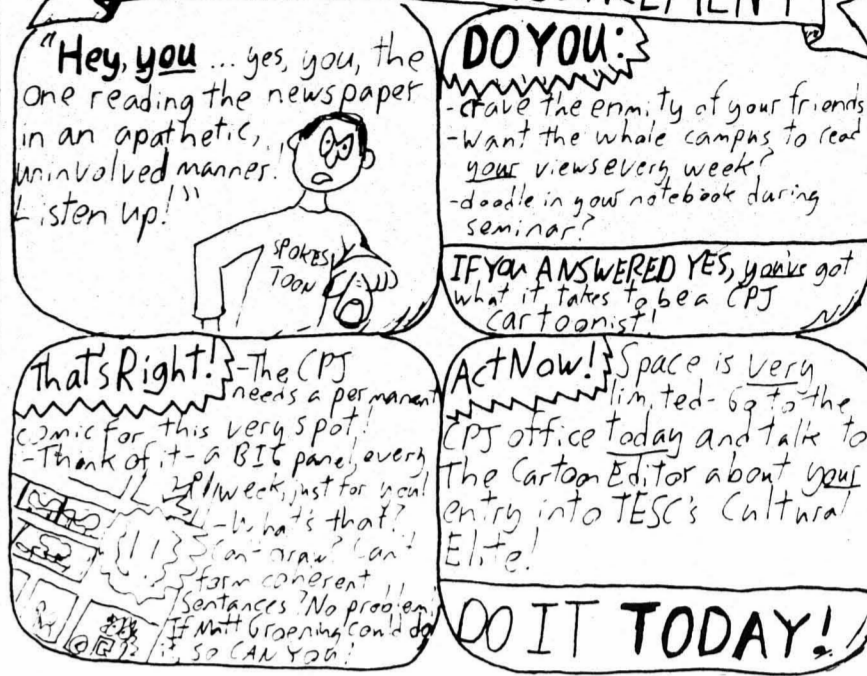 "Hey, you ... yes, you, the
one reading the newspaper
in an apathetic,
uninvolved manner!
Listen up!"
SPOKES
TOON
DO YOU:
-crave the enmity of your friends
-Want the whole campus to read
your views every week?
-doodle in your notebook during
seminar?
IF YOU ANSWERED YES, you've got
what it takes to be a CPJ
cartoonist!
That's Right! -The CPJ
needs a permanent
comic for this very spot!
-Think of it - a BIG panel every
week, just for you!
-What's that?
Can't draw? Can't
form coherent
sentences? No problem!
If Matt Groening could do
it, SO CAN YOU!
Act Now! Space is very
limited - Go to the
CPJ office today and talk to
the Cartoon Editor about your
entry into TESC's Cultural
Elite!
DO IT TODAY!